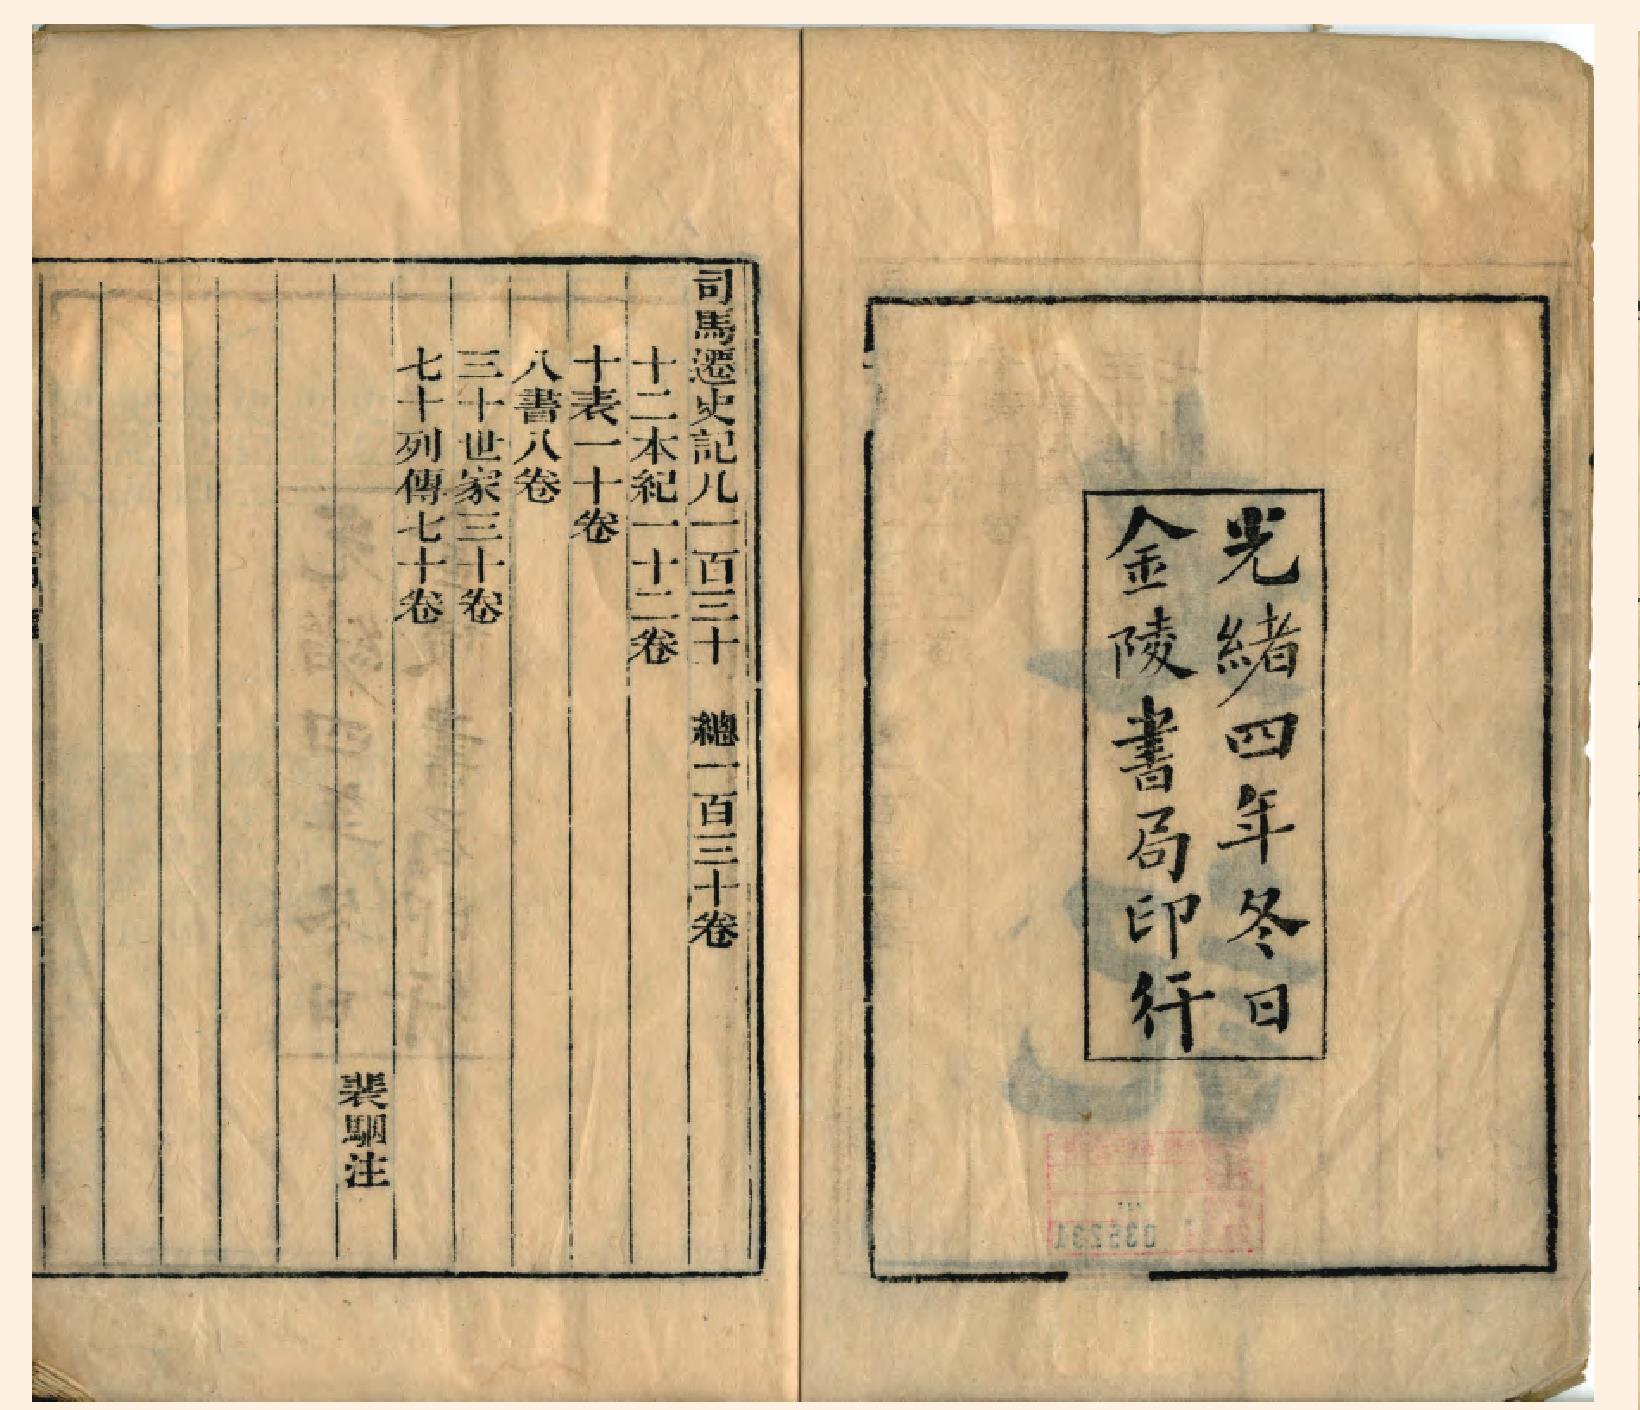 光緒四年冬日
金陵書局印行
司馬遷史記凡一百三十　總一百三十卷
十二本紀一十二卷
十表一十卷
八書八卷
三十世家三十卷
七十列傳七十卷
裴駰注